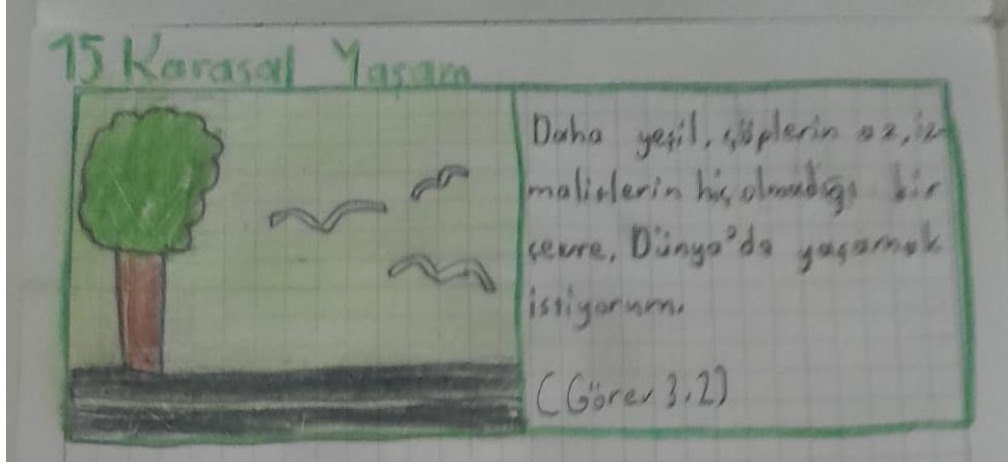 15 Karasal Yaşam
Daha yeşil, çöplerin az, iz
maliştlerin hiç olmadığı bir
çevre, Dünya'da yaşamak
istiyorum.
(Görev 3.2)